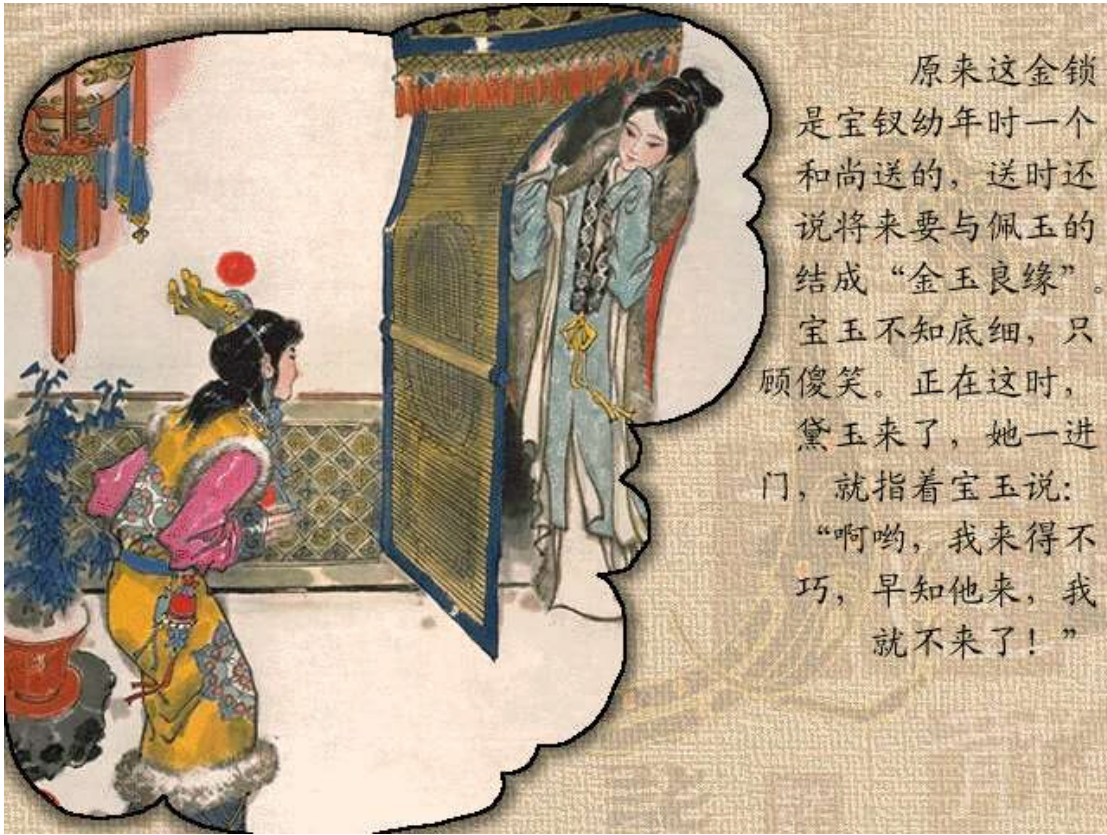 原来这金锁
是宝钗幼年时一个
和尚送的，送时还
说将来要与佩玉的
结成“金玉良缘”。
宝玉不知底细，只
顾傻笑。正在这时，
黛玉来了，她一进
门，就指着宝玉说：
“啊哟，我来得不
巧，早知他来，我
就不来了！”